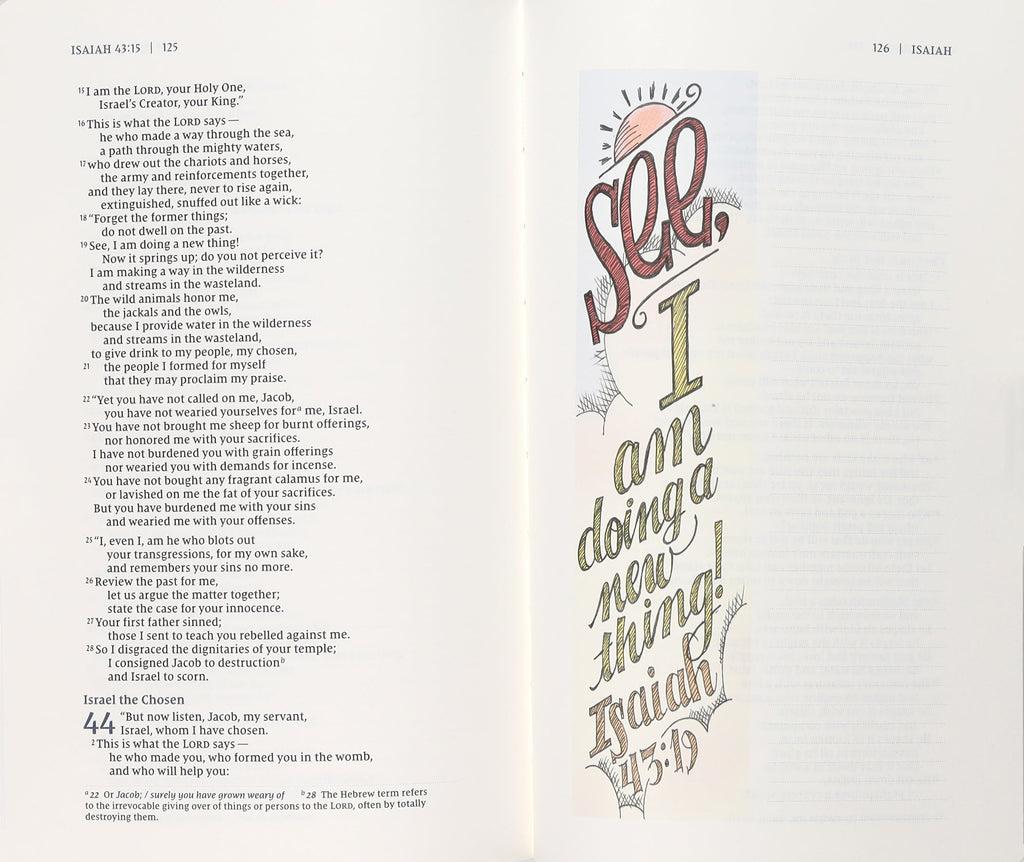 ISAIAH 43:15 | 125
15 I am the LORD, your Holy One,
Israel's Creator, your King."
16 This is what the LORD says —
he who made a way through the sea,
a path through the mighty waters,
17 who drew out the chariots and horses,
the army and reinforcements together,
and they lay there, never to rise again,
extinguished, snuffed out like a wick:
18 "Forget the former things;
do not dwell on the past.
19 See, I am doing a new thing!
Now it springs up; do you not perceive it?
I am making a way in the wilderness
and streams in the wasteland.
20 The wild animals honor me,
the jackals and the owls,
because I provide water in the wilderness
and streams in the wasteland,
to give drink to my people, my chosen,
21 the people I formed for myself
that they may proclaim my praise.
22 "Yet you have not called on me, Jacob,
you have not wearied yourselves for a me, Israel.
23 You have not brought me sheep for burnt offerings,
nor honored me with your sacrifices.
I have not burdened you with grain offerings
nor wearied you with demands for incense.
24 You have not bought any fragrant calamus for me,
or lavished on me the fat of your sacrifices.
But you have burdened me with your sins
and wearied me with your offenses.
25 "I, even I, am he who blots out
your transgressions, for my own sake,
and remembers your sins no more.
26 Review the past for me,
let us argue the matter together;
state the case for your innocence.
27 Your first father sinned;
those I sent to teach you rebelled against me.
28 So I disgraced the dignitaries of your temple;
I consigned Jacob to destruction b
and Israel to scorn.
Israel the Chosen
44 "But now listen, Jacob, my servant,
Israel, whom I have chosen.
2 This is what the LORD says —
he who made you, who formed you in the womb,
and who will help you:
a 22 Or Jacob; / surely you have grown weary of b 28 The Hebrew term refers
to the irrevocable giving over of things or persons to the LORD, often by totally
destroying them.
126 | ISAIAH
See,
I
am
doing a
new
thing!
Isaiah
43:19